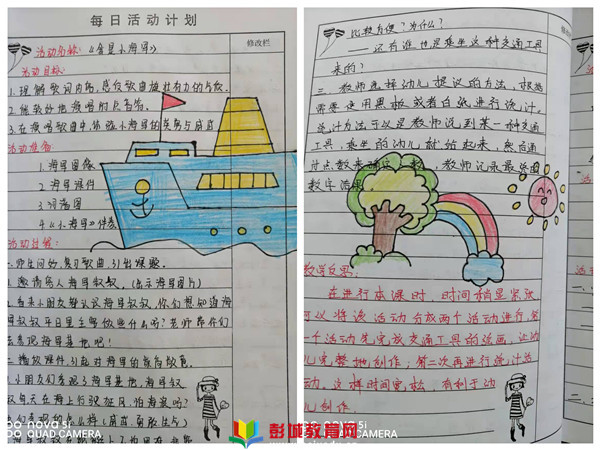 每日活动计划
修改栏
活动名称：《我是小海军》
活动目标：
1.理解歌词内容，感受歌曲雄壮有力的气质。
2.能较好地演唱附点音符。
3.在演唱歌曲中体验小海军的英勇与威武
活动准备：
1.海军图像
2.海军课件
3.词谱图
4.《小海军》伴奏
活动过程：
一.师生问好，复习歌曲，引出课题。
1.邀请客人海军叔叔，（出示海军图片）
2.看来小朋友都认识海军叔叔，你们想知道海
军叔叔平日里主要做些什么吗？老师带你们
去参观海军基地吧！
二.播放课件，引起对海军的崇敬敬意。
1.小朋友们参观了海军基地，海军叔
叔每天在海上行驶狂风，怕海浪吗？
比较方便？为什么？
还有谁也是乘坐这种交通工具
来的？
三.教师选择幼儿提议的方法，根据
需要使用黑板或者白纸进行统计。
统计方法可以是教师说到某一种交通
工具，乘坐的幼儿就站起来，然后通
过点数来确定人数，教师记录最终的
数字结果。
教学反思：
在进行本课时，时间稍显紧张
可以将该活动分成两个活动进行，第
一个活动先完成交通工具的绘画，让幼
儿完整地制作；第二次再进行统计活
动。这样时间宽松，有利于幼
儿制作。
nova 5i
QUAD CAMERA
nova 5i
QUAD CAMERA
彭城教育网